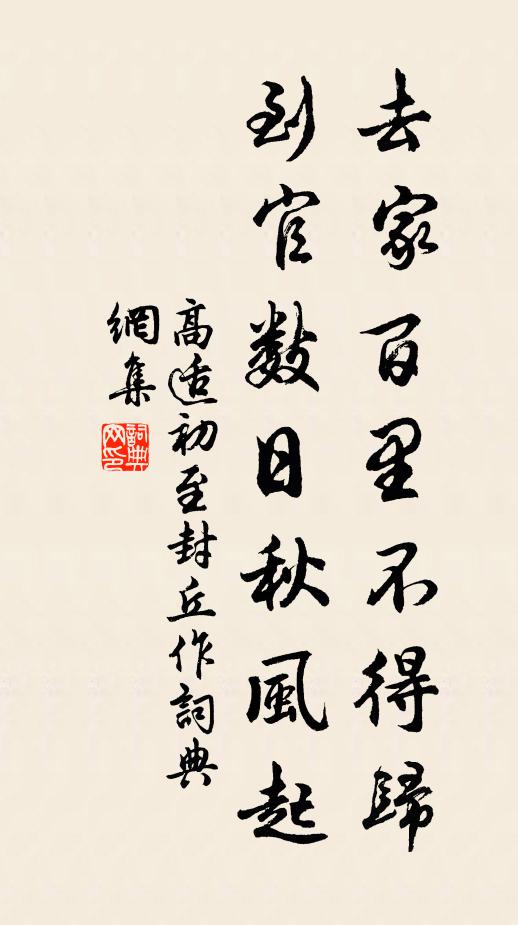 去家百里不得歸
到官數日秋風起
高适初至封丘作詞典
網集
詞典網印